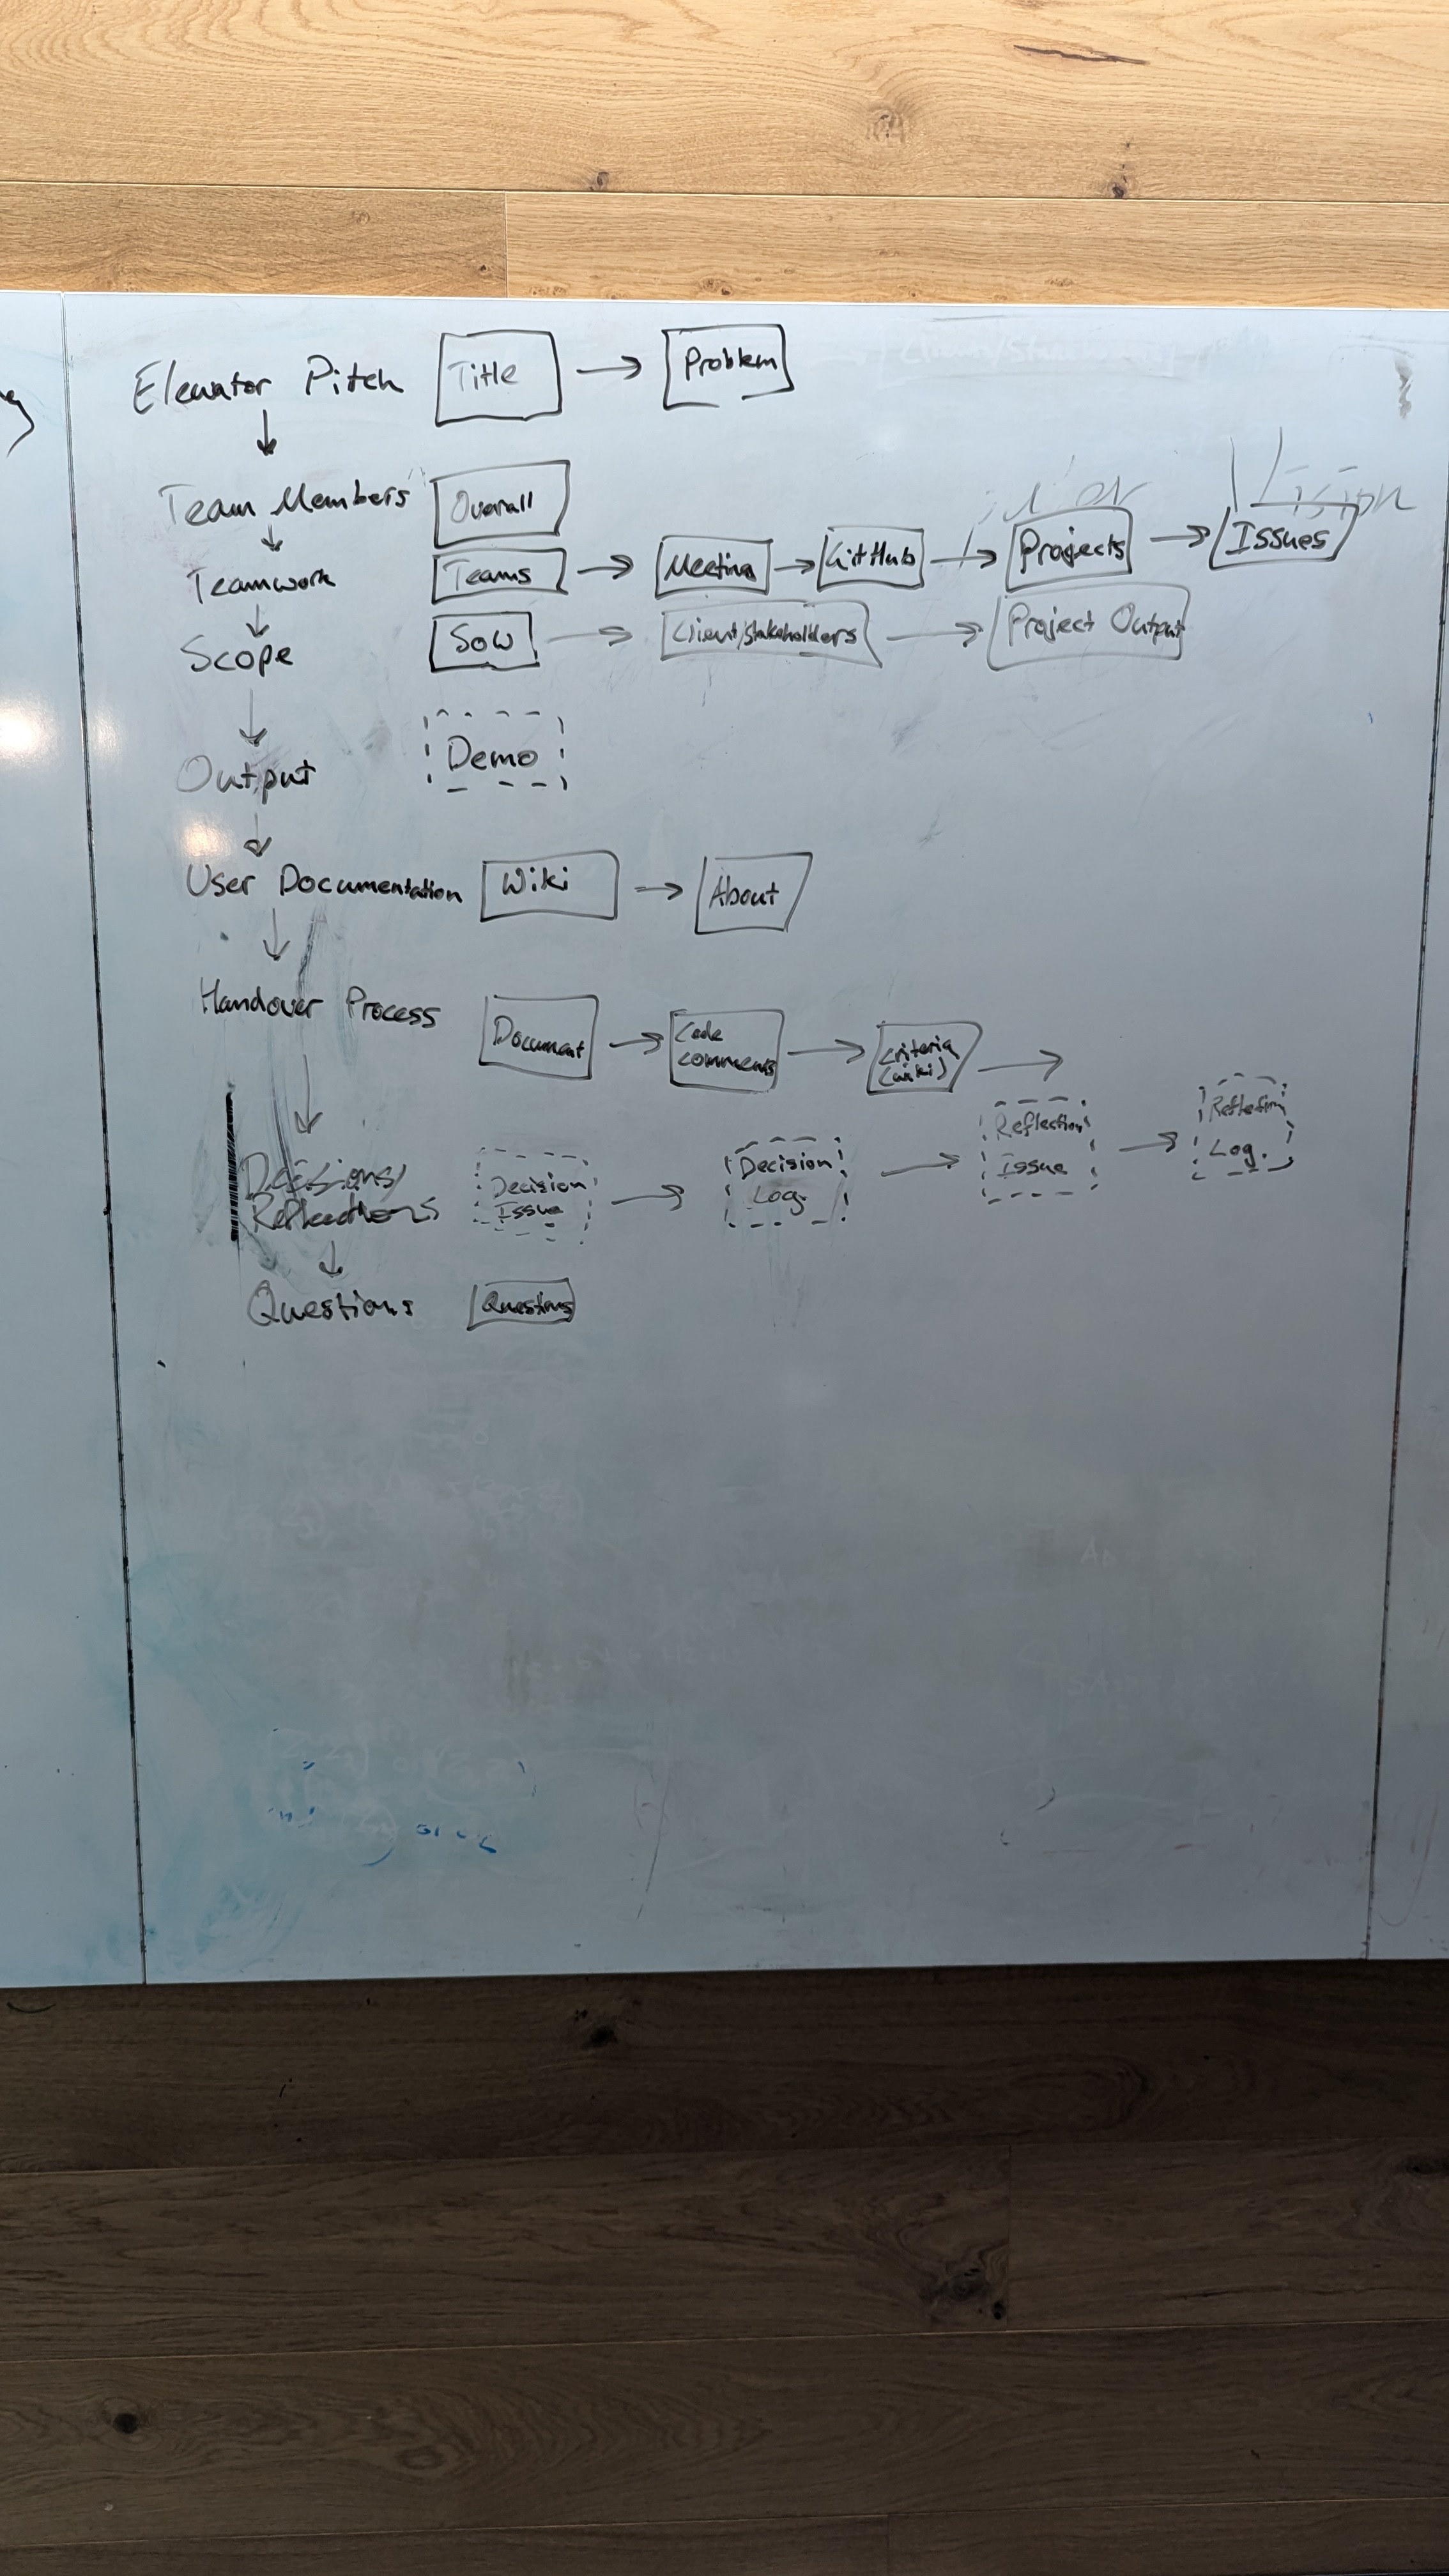 Elevator Pitch Title → Problem
↓
Team Members Overall
↓
Teamwork Teams → Meeting → GitHub → Projects → Issues
↓
Scope SoW → Client/Stakeholders → Project Output
↓
Output Demo
↓
User Documentation Wiki → About
↓
Handover Process Document → Code comments → Criteria (wiki) →
↓
Decisions/
Reflections Decision Issue → Decision Log. → Reflection Issue → Reflection Log.
↓
Questions Questions
Vision